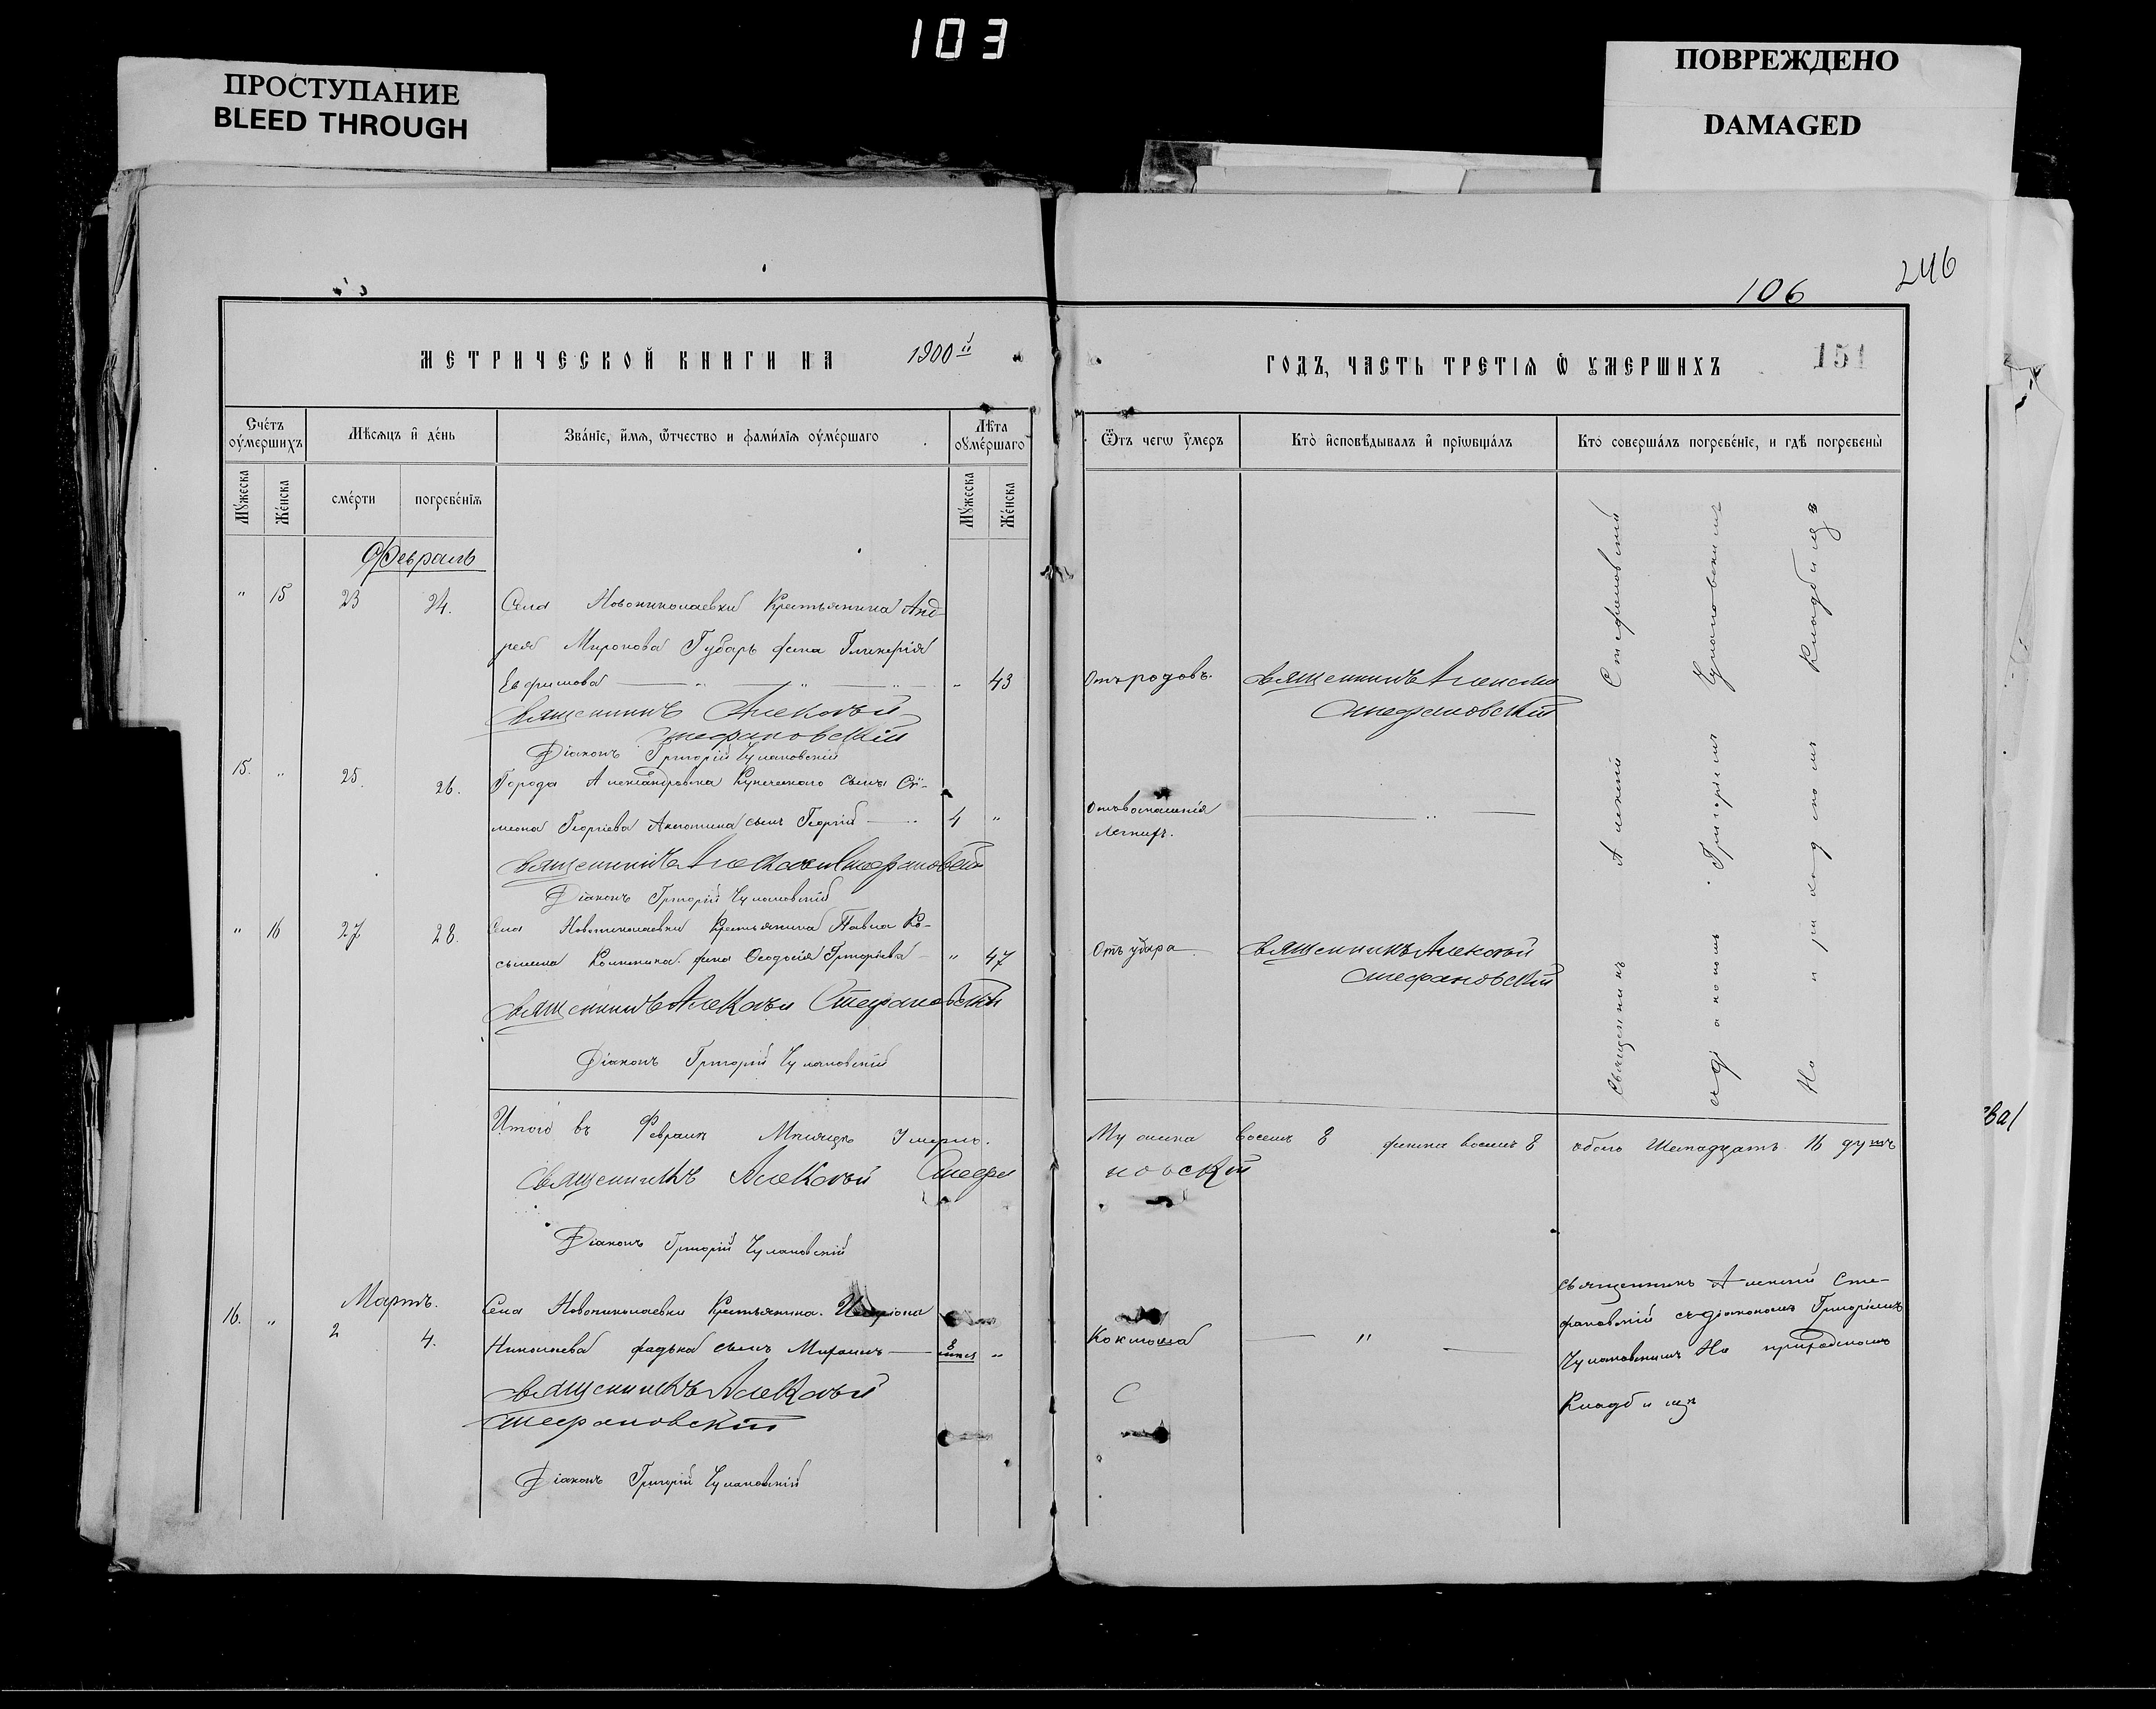 103
ПРОСТУПАНИЕ
BLEED THROUGH
ПОВРЕЖДЕНО
DAMAGED
246
106
151
МЕТРИЧЕСКОЙ КНИГИ НА 1900й
ГОДЪ, ЧАСТЬ ТРЕТІѦ Ѡ УМЕРШИХЪ
Счетъ оумершихъ
Мѣсяцъ и день
Званіе, имѧ, ѿтчество и фамиліѧ оумершаго
Лѣта оумершаго
Ѿтъ чегѡ умеръ
Кто исповѣдывалъ и пріѡбщалъ
Кто совершалъ погребеніе, и гдѣ погребены
Мужеска
Женска
смерти
погребеніѧ
Мужеска
Женска
Февраль
" 15 23 24. Села Новониколаевки Крестьянина Анд-
рея Миронова Губарь жена Гликерія
Евфимова " 43 Отъ родовъ. Священникъ Алексій
Стефановскій
Священникъ Алексѣй
Стефановскій
Діаконъ Григорій Чулановскій
15. " 25. 26. Города Александровска Купеческаго сына Си-
меона Георгіева сынъ Георгій 4 " Отъ воспаленія
легкихъ.
Священникъ Алексѣй Стефановскій
Діаконъ Григорій Чулановскій
" 16 27 28. Села Новониколаевки Крестьянина Павла Ко-
жена Ѳеодосія Григорьева " 47 Отъ удара Священникъ Алексѣй
Стефановскій
Священникъ Алексѣй Стефановскій
Діаконъ Григорій Чулановскій
Священникъ Алексій Стефановскій
съ діакономъ Григоріемъ Чулановскимъ
На приходскомъ кладбищѣ
Итого въ Февралѣ Мѣсяцѣ Умерло. Мужеска восемь 8 женска восемь 8 обоего Шестнадцать 16 душъ
Священникъ Алексѣй Стефановскій
Діаконъ Григорій Чулановскій
Мартъ.
16. " 2 4. Села Новониколаевки Крестьянина
Николаева сынъ 8 "
Коклюша "
Священникъ Алексій Сте-
фановскій съ діакономъ Григоріемъ
Чулановскимъ На приходскомъ
Кладбищѣ
Священникъ Алексѣй
Стефановскій
Діаконъ Григорій Чулановскій